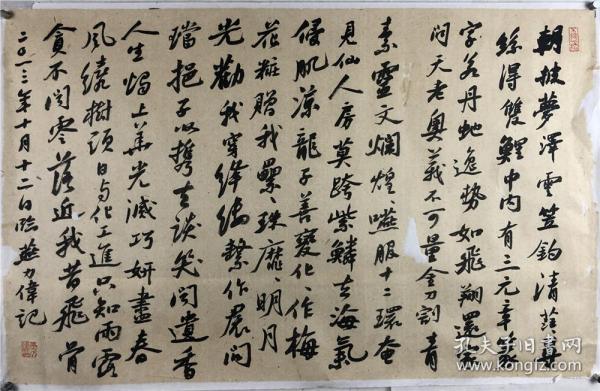 朝披夢澤雲笠釣清茫
絲得雙鯉中内有三元章篆
字若丹蛇逸勢如飛翔還家
問天老奧義不可量金刀割青
素靈文爛煌々嚥服十二環奄
見仙人房莫跨紫鱗去海氣
侵肌涼龍子善變化々作梅
花粧贈我纍々珠靡々明月
光勸我穿絳縷繫作裙間
璫挹子以攜去談笑聞遺香
人生燭上華光滅巧妍盡春
風繞樹頭日与化工進只知雨露
貪不聞零落近我昔飛骨
二〇一三年十月十二日臨 力偉記
孔夫子旧书网
www.kongfz.com